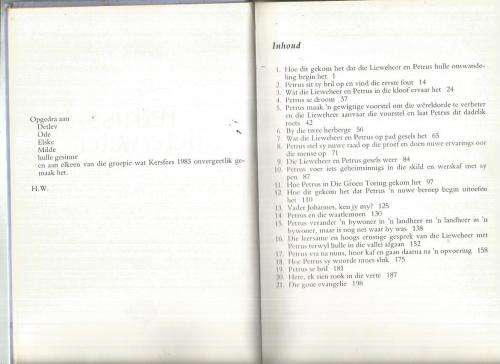 Opgedra aan
Detlev
Ode
Elske
Milde
hulle gesinne
en aan elkeen van die groepie wat Kersfees 1985 onvergeetlik ge-
maak het.
H.W.
Inhoud
1. Hoe dit gekom het dat die Lieweheer en Petrus hulle omswande-
ling begin het 1
2. Petrus sit sy bril op en vind die eerste fout 14
3. Wat die Lieweheer en Petrus in die kloof ervaar het 24
4. Petrus se droom 37
5. Petrus maak 'n gewigtige voorstel om die wêreldorde te verbeter
en die Lieweheer aanvaar die voorstel en laat Petrus dit dadelik
toets 42
6. By die twee herberge 56
7. Wat die Lieweheer en Petrus op pad gesels het 65
8. Petrus stel sy nuwe raad op die proef en doen nuwe ervarings oor
die mense op 71
9. Die Lieweheer en Petrus gesels weer 84
10. Petrus voer iets geheimsinnigs in die skild en werskaf met sy
pen 87
11. Hoe Petrus in Die Groen Toring gekom het 97
12. Hoe dit gekom het dat Petrus 'n nuwe beroep begin uitoefen
het 110
13. Vader Johannes, ken jy my? 125
14. Petrus en die waatlemoen 130
15. Petrus verander 'n bywoner in 'n landheer en 'n landheer in 'n
bywoner, maar is nog net waar hy was 138
16. Die leersame en hoogs ernstige gesprek van die Lieweheer met
Petrus terwyl hulle in die vallei afgaan 152
17. Petrus en gaan daarna na 'n opvoering 158
18. Hoe Petrus sy woorde moes sluk 175
19. Petrus se bril 181
20. Here, ek sien rook in die verte 187
21. Die goue evangelie 198